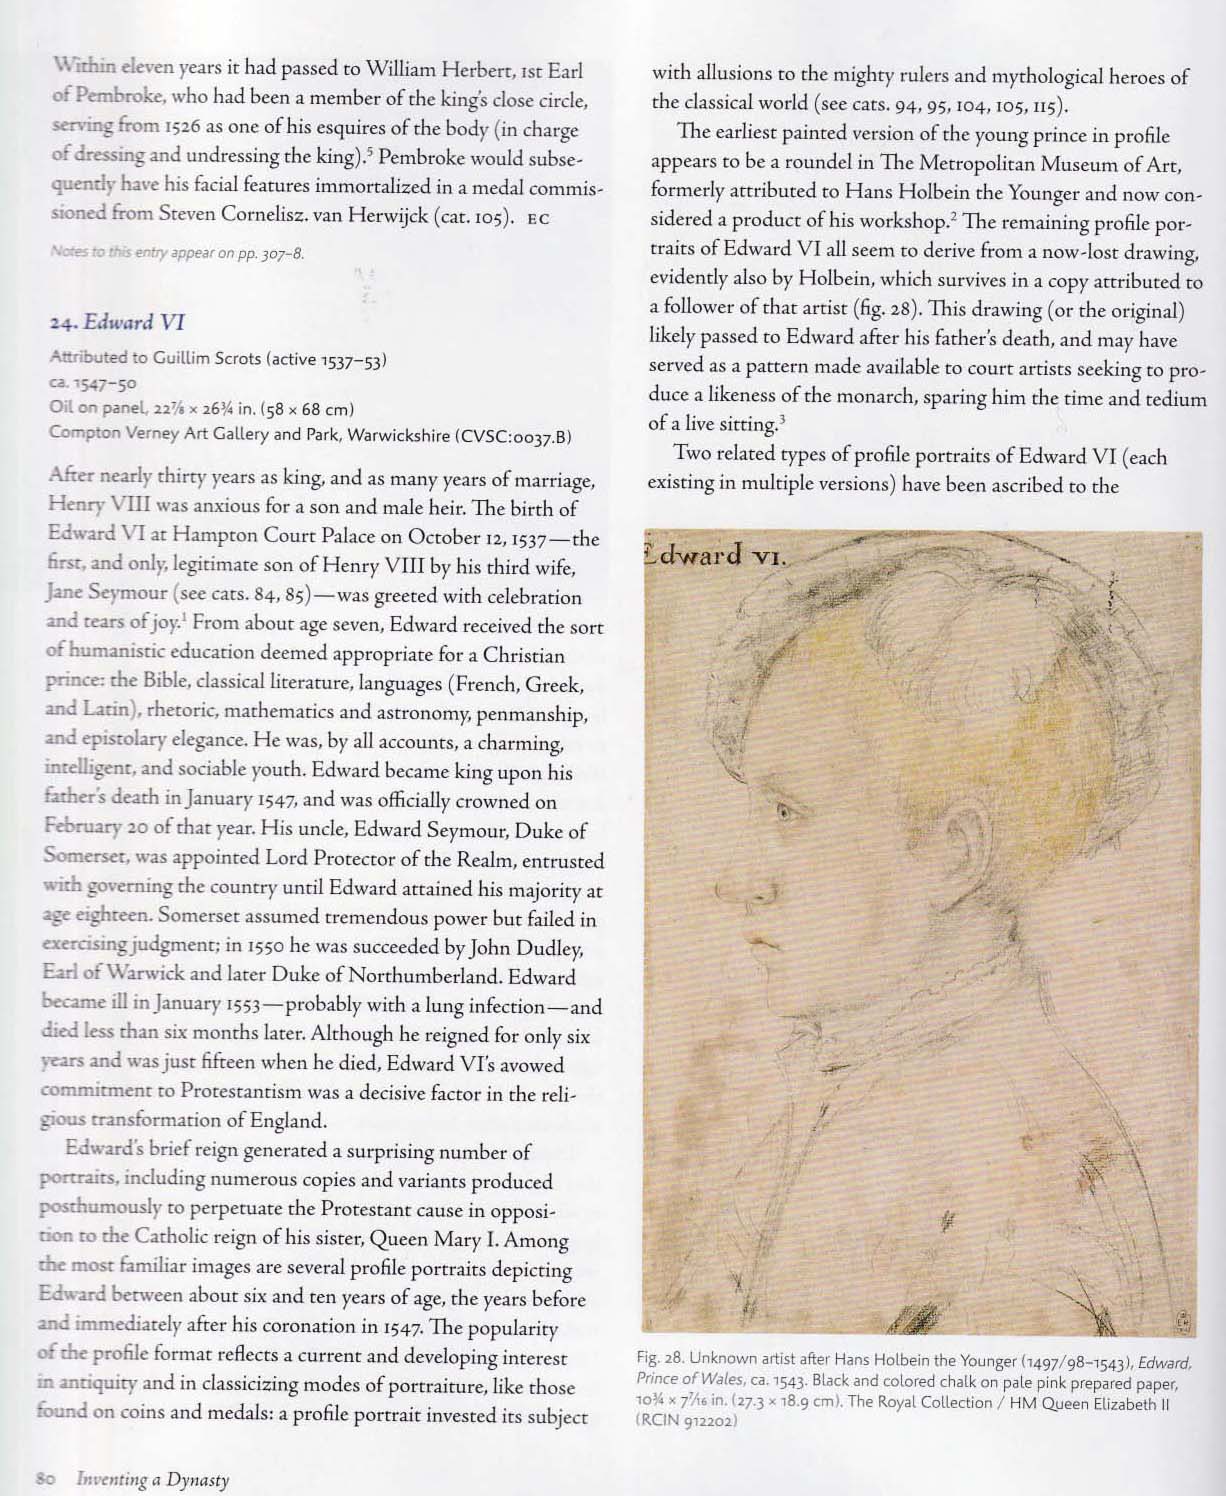 Within eleven years it had passed to William Herbert, 1st Earl
of Pembroke, who had been a member of the king's close circle,
serving from 1526 as one of his esquires of the body (in charge
of dressing and undressing the king).⁵ Pembroke would subse-
quently have his facial features immortalized in a medal commis-
sioned from Steven Cornelisz. van Herwijck (cat. 105). EC
Notes to this entry appear on pp. 307–8.
24. Edward VI
Attributed to Guillim Scrots (active 1537–53)
ca. 1547–50
Oil on panel, 22⅞ × 26¾ in. (58 × 68 cm)
Compton Verney Art Gallery and Park, Warwickshire (CVSC:0037.B)
After nearly thirty years as king, and as many years of marriage,
Henry VIII was anxious for a son and male heir. The birth of
Edward VI at Hampton Court Palace on October 12, 1537—the
first, and only, legitimate son of Henry VIII by his third wife,
Jane Seymour (see cats. 84, 85)—was greeted with celebration
and tears of joy.¹ From about age seven, Edward received the sort
of humanistic education deemed appropriate for a Christian
prince: the Bible, classical literature, languages (French, Greek,
and Latin), rhetoric, mathematics and astronomy, penmanship,
and epistolary elegance. He was, by all accounts, a charming,
intelligent, and sociable youth. Edward became king upon his
father's death in January 1547, and was officially crowned on
February 20 of that year. His uncle, Edward Seymour, Duke of
Somerset, was appointed Lord Protector of the Realm, entrusted
with governing the country until Edward attained his majority at
age eighteen. Somerset assumed tremendous power but failed in
exercising judgment; in 1550 he was succeeded by John Dudley,
Earl of Warwick and later Duke of Northumberland. Edward
became ill in January 1553—probably with a lung infection—and
died less than six months later. Although he reigned for only six
years and was just fifteen when he died, Edward VI's avowed
commitment to Protestantism was a decisive factor in the reli-
gious transformation of England.
Edward's brief reign generated a surprising number of
portraits, including numerous copies and variants produced
posthumously to perpetuate the Protestant cause in opposi-
tion to the Catholic reign of his sister, Queen Mary I. Among
the most familiar images are several profile portraits depicting
Edward between about six and ten years of age, the years before
and immediately after his coronation in 1547. The popularity
of the profile format reflects a current and developing interest
in antiquity and in classicizing modes of portraiture, like those
found on coins and medals: a profile portrait invested its subject
80 Inventing a Dynasty
with allusions to the mighty rulers and mythological heroes of
the classical world (see cats. 94, 95, 104, 105, 115).
The earliest painted version of the young prince in profile
appears to be a roundel in The Metropolitan Museum of Art,
formerly attributed to Hans Holbein the Younger and now con-
sidered a product of his workshop.² The remaining profile por-
traits of Edward VI all seem to derive from a now-lost drawing,
evidently also by Holbein, which survives in a copy attributed to
a follower of that artist (fig. 28). This drawing (or the original)
likely passed to Edward after his father's death, and may have
served as a pattern made available to court artists seeking to pro-
duce a likeness of the monarch, sparing him the time and tedium
of a live sitting.³
Two related types of profile portraits of Edward VI (each
existing in multiple versions) have been ascribed to the
Edward VI.
Fig. 28. Unknown artist after Hans Holbein the Younger (1497/98–1543), Edward,
Prince of Wales, ca. 1543. Black and colored chalk on pale pink prepared paper,
10¾ × 7⁷⁄₁₆ in. (27.3 × 18.9 cm). The Royal Collection / HM Queen Elizabeth II
(RCIN 912202)